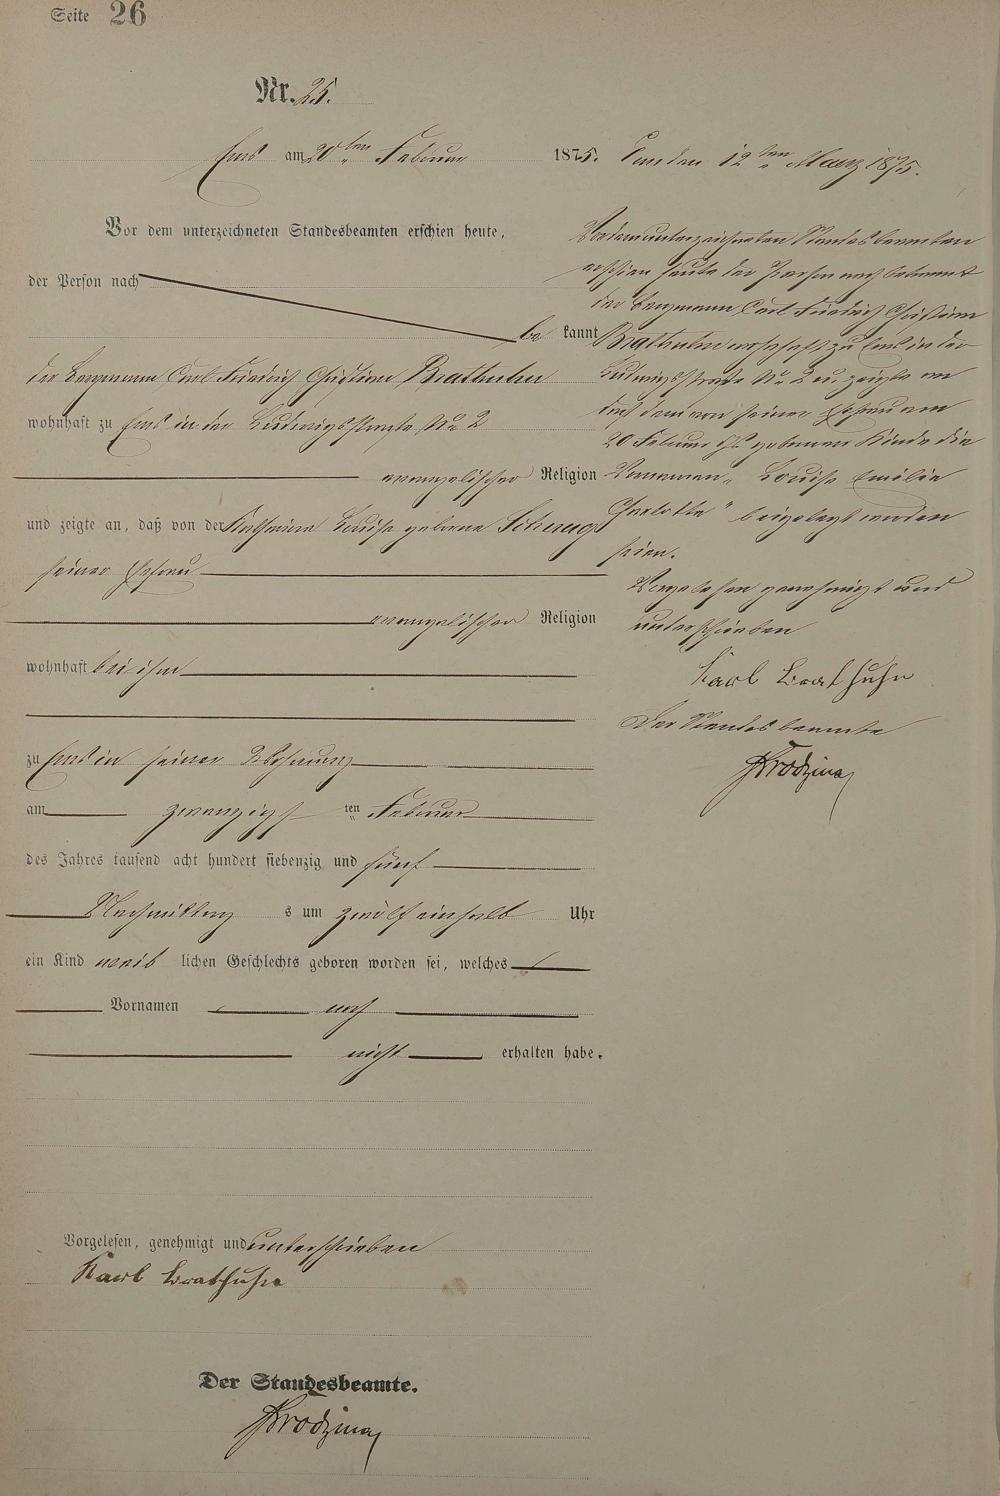 Seite 26
Nr. 25.
Ems am 20ten Februar 1875.
Vor dem unterzeichneten Standesbeamten erschien heute,
der Person nach
be kannt
der Bergmann Carl Friedrich Christian Brathuhn
wohnhaft zu Ems in der Ludwigsstraße No 2
evangelischer Religion
und zeigte an, daß von der Katharine Louise geborne
seiner Ehefrau
evangelischer Religion
wohnhaft bei ihm
zu Ems in seiner Wohnung
am zwanzigsten Februar
des Jahres tausend acht hundert siebenzig und fünf
Nachmittags um zwölf einhalb Uhr
ein Kind weiblichen Geschlechts geboren worden sei, welches
Vornamen noch
nicht erhalten habe.
Vorgelesen, genehmigt und unterschrieben
Karl Brathuhn
Der Standesbeamte.
Brodzina
Ems den 12ten Maerz 1875.
Vor dem unterzeichneten Standesbeamten
erschien heute der Person nach bekannt
der Bergmann Carl Friedrich Christian
Brathuhn wohnhaft zu Ems in der
Ludwigsstraße No 2 u. zeigte an
daß dem von seiner Ehefrau am
20 Februar gebornen Kinde die
Vornamen „Louise Emilie
Charlotte" beigelegt worden
seien.
Vorgelesen genehmigt und
unterschrieben
Karl Brathuhn
Der Standesbeamte
Brodzina